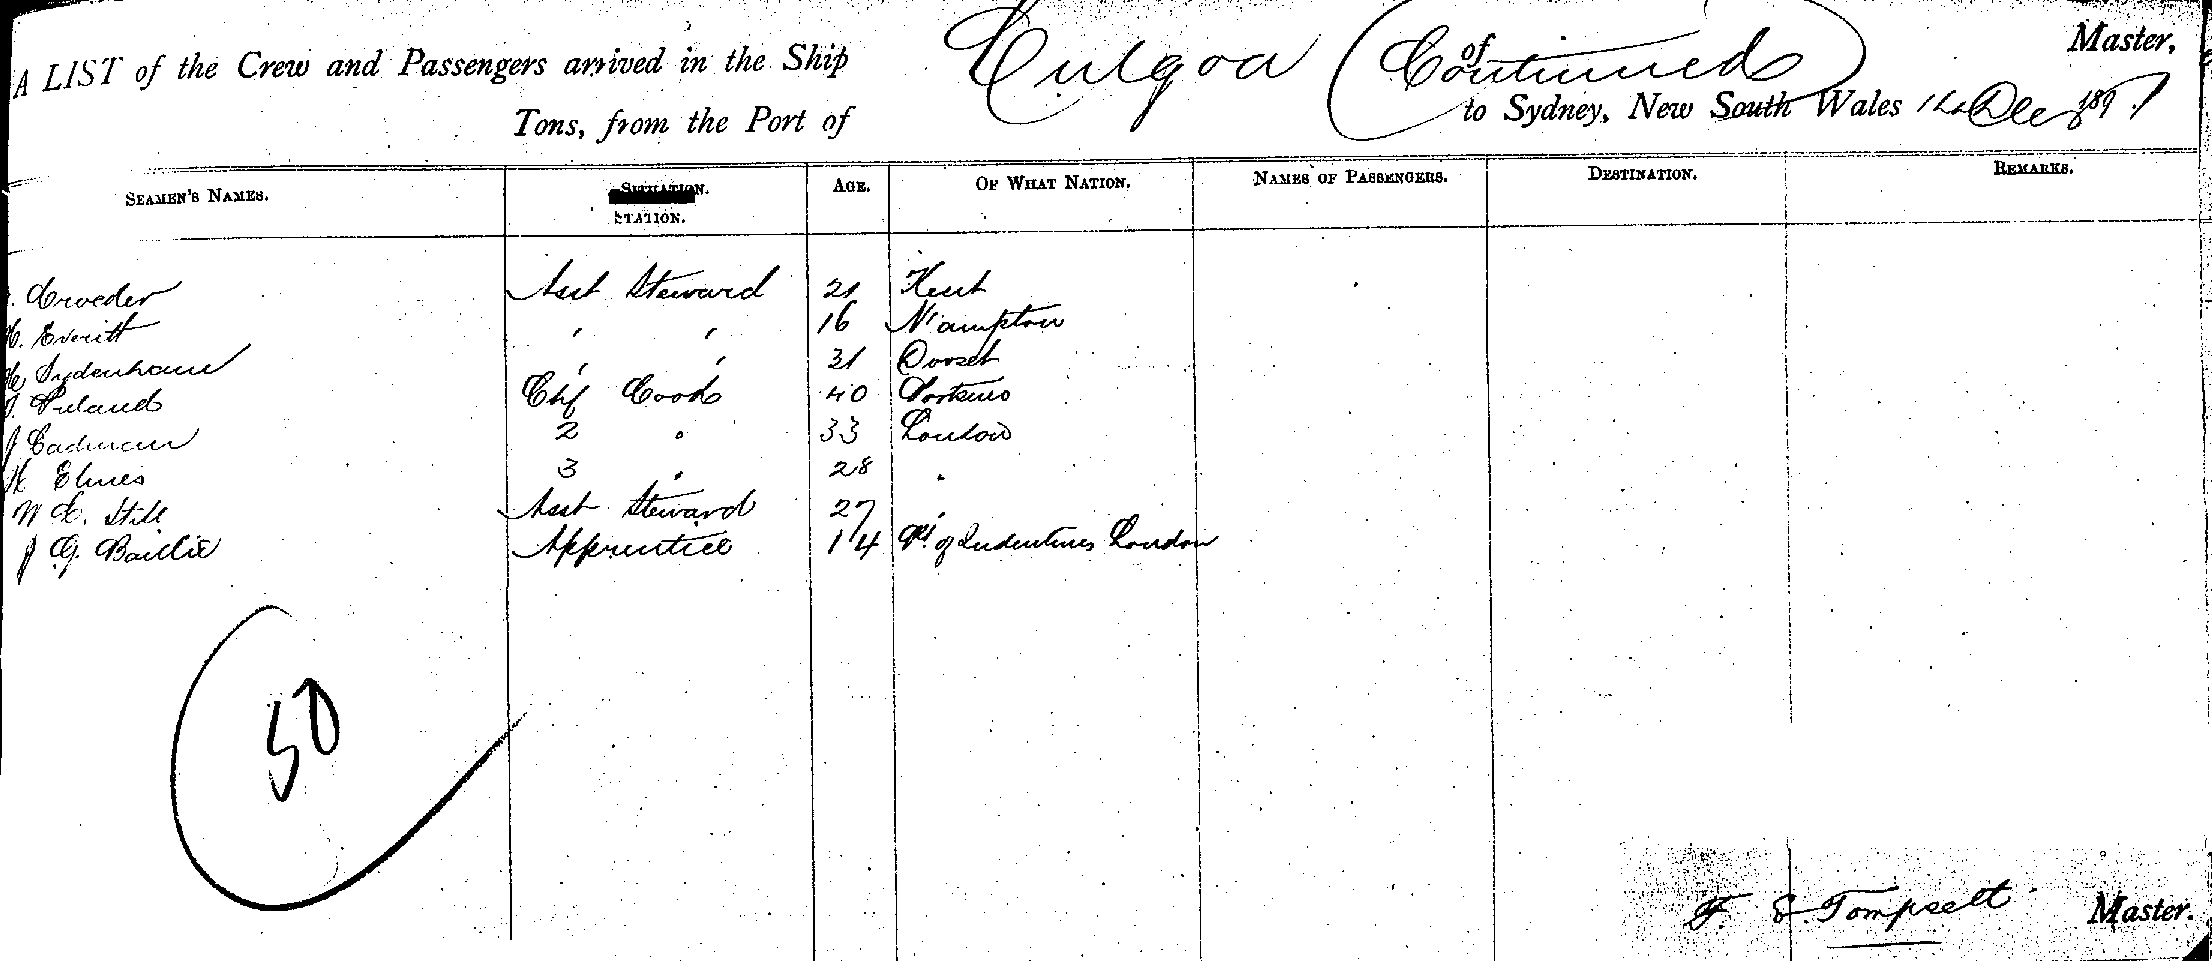 A LIST of the Crew and Passengers arrived in the Ship Culgoa (Continued) of Master,
Tons, from the Port of to Sydney, New South Wales Dec 1897
SEAMEN'S NAMES. SITUATION. STATION. AGE. OF WHAT NATION. NAMES OF PASSENGERS. DESTINATION. REMARKS.
Croeder Asst Steward 21 Kent
Everitt " " 16 N'ampton
Sydenham " " 31 Dorset
Puland Chf Cook 40
J Cadman 2 " 33 London
H Elmes 3 " 28 "
W E. Still Asst Steward 27 "
J G. Baillie Apprentice 14 Pt of Indentures London
50
F. E Tompsett Master.